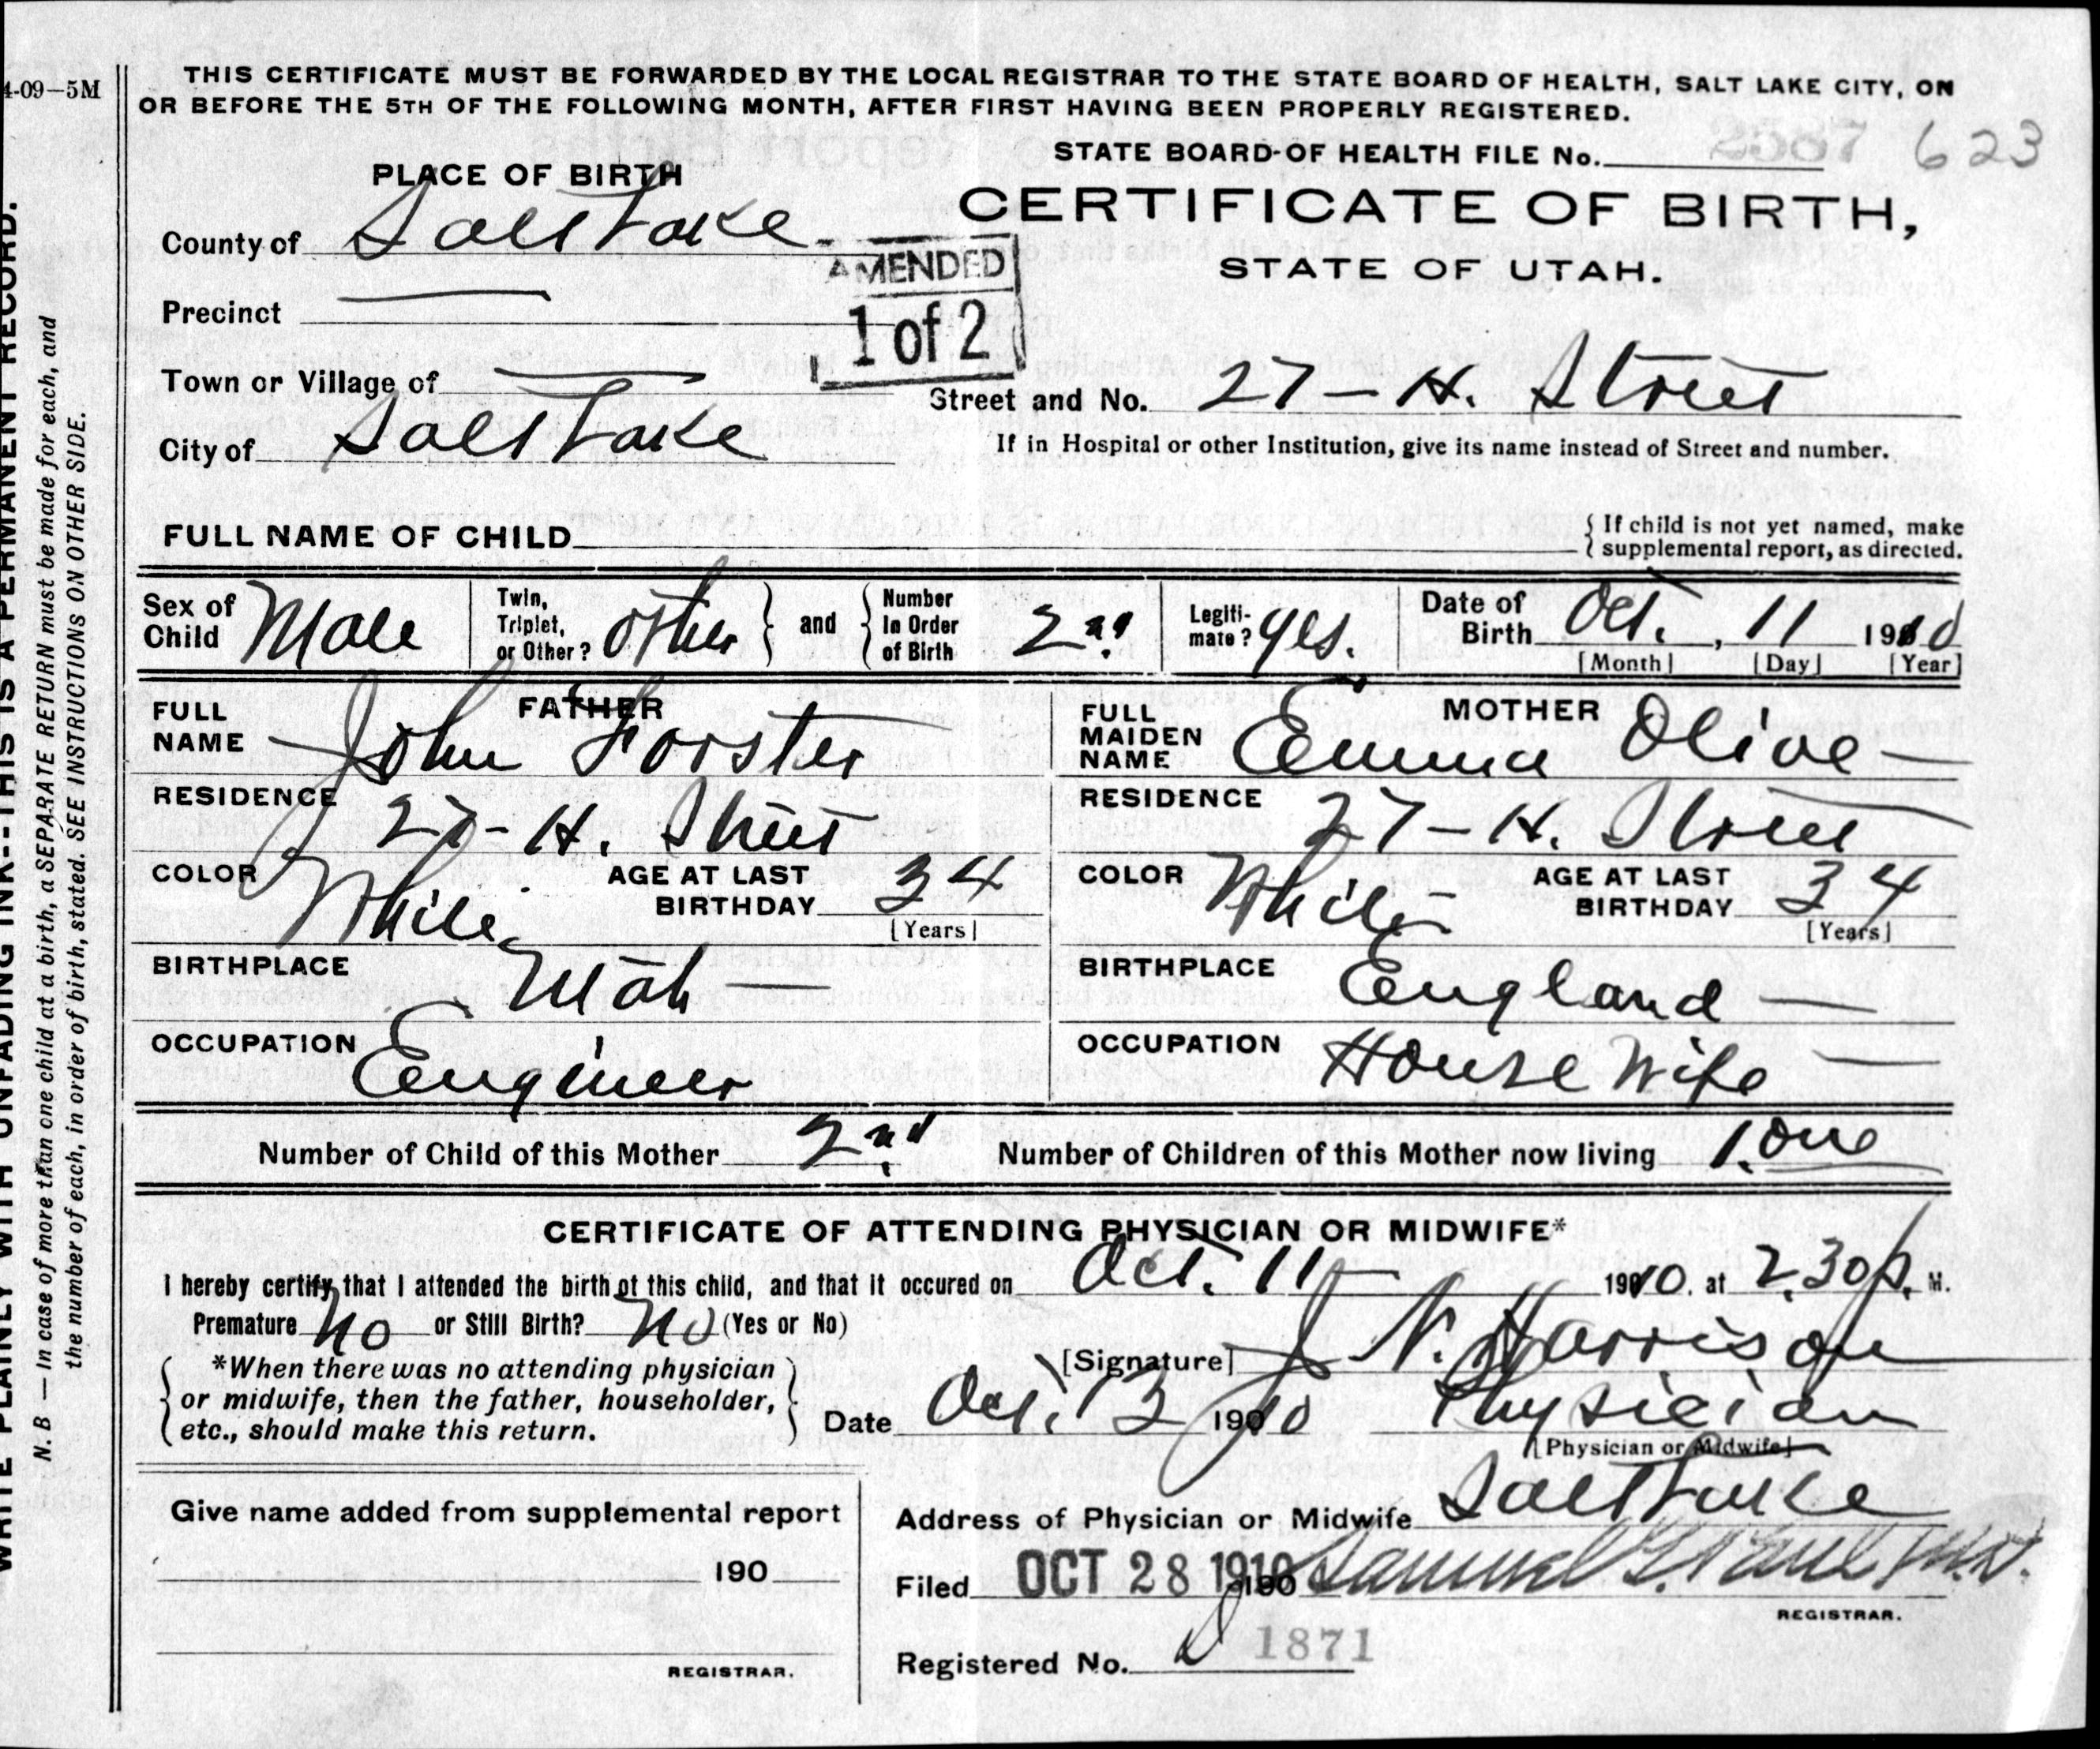 4-09—5M
THIS CERTIFICATE MUST BE FORWARDED BY THE LOCAL REGISTRAR TO THE STATE BOARD OF HEALTH, SALT LAKE CITY, ON
OR BEFORE THE 5TH OF THE FOLLOWING MONTH, AFTER FIRST HAVING BEEN PROPERLY REGISTERED.
STATE BOARD OF HEALTH FILE No. 2587 623
PLACE OF BIRTH
CERTIFICATE OF BIRTH,
STATE OF UTAH.
County of Salt Lake
AMENDED
1 of 2
Precinct
Town or Village of
Street and No. 27 - H. Street
City of Salt Lake
If in Hospital or other Institution, give its name instead of Street and number.
FULL NAME OF CHILD
If child is not yet named, make
supplemental report, as directed.
Sex of Child Male
Twin, Triplet, or Other? other and Number In Order of Birth 2nd
Legiti-mate? yes.
Date of Birth Oct. , 11 1910
[Month] [Day] [Year]
FATHER
FULL NAME John Forster
RESIDENCE 27 - H. Street
COLOR White
AGE AT LAST BIRTHDAY 34
[Years]
BIRTHPLACE Utah
OCCUPATION Engineer
MOTHER
FULL MAIDEN NAME Emma Olive
RESIDENCE 27 - H. Street
COLOR White
AGE AT LAST BIRTHDAY 34
[Years]
BIRTHPLACE England
OCCUPATION House Wife
Number of Child of this Mother 2nd Number of Children of this Mother now living 1. one
CERTIFICATE OF ATTENDING PHYSICIAN OR MIDWIFE*
I hereby certify that I attended the birth of this child, and that it occured on Oct. 11 1910. at 2.30 p. M.
Premature No or Still Birth? No (Yes or No)
[Signature] J N. Harrison
*When there was no attending physician
or midwife, then the father, householder,
etc., should make this return.
Date Oct. 13 1910 Physician
[Physician or Midwife]
Give name added from supplemental report
190
REGISTRAR.
Address of Physician or Midwife Salt Lake
Filed OCT 28 1910 190 Samuel G. Paul M.D.
REGISTRAR.
Registered No. 1871
WRITE PLAINLY WITH UNFADING INK--THIS IS A PERMANENT RECORD.
N. B — In case of more than one child at a birth, a SEPARATE RETURN must be made for each, and
the number of each, in order of birth, stated. SEE INSTRUCTIONS ON OTHER SIDE.